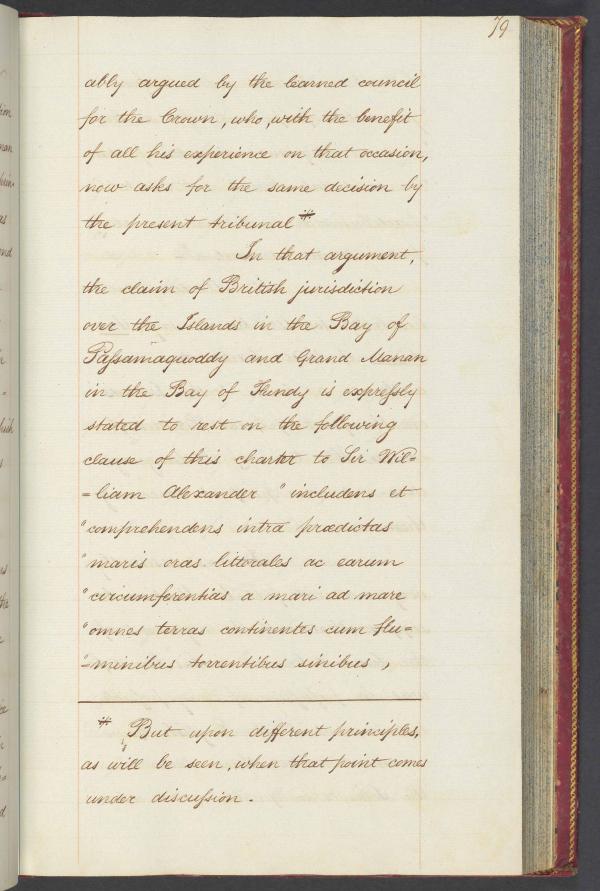 79
ably argued by the learned council
for the Crown, who, with the benefit
of all his experience on that occasion,
now asks for the same decision by
the present tribunal #
In that argument,
the claim of British jurisdiction
over the Islands in the Bay of
Paſsamaquoddy and Grand Manan
in the Bay of Fundy is expreſsly
stated to rest on the following
clause of this charter to Sir Wil=
=liam Alexander "includens et
"comprehendens intra prædictas
"maris oras littorales ac earum
"circumferentias a mari ad mare
"omnes terras continentes cum flu=
"=minibus torrentibus sinibus,
# But upon different principles,
as will be seen, when that point comes
under discuſsion.